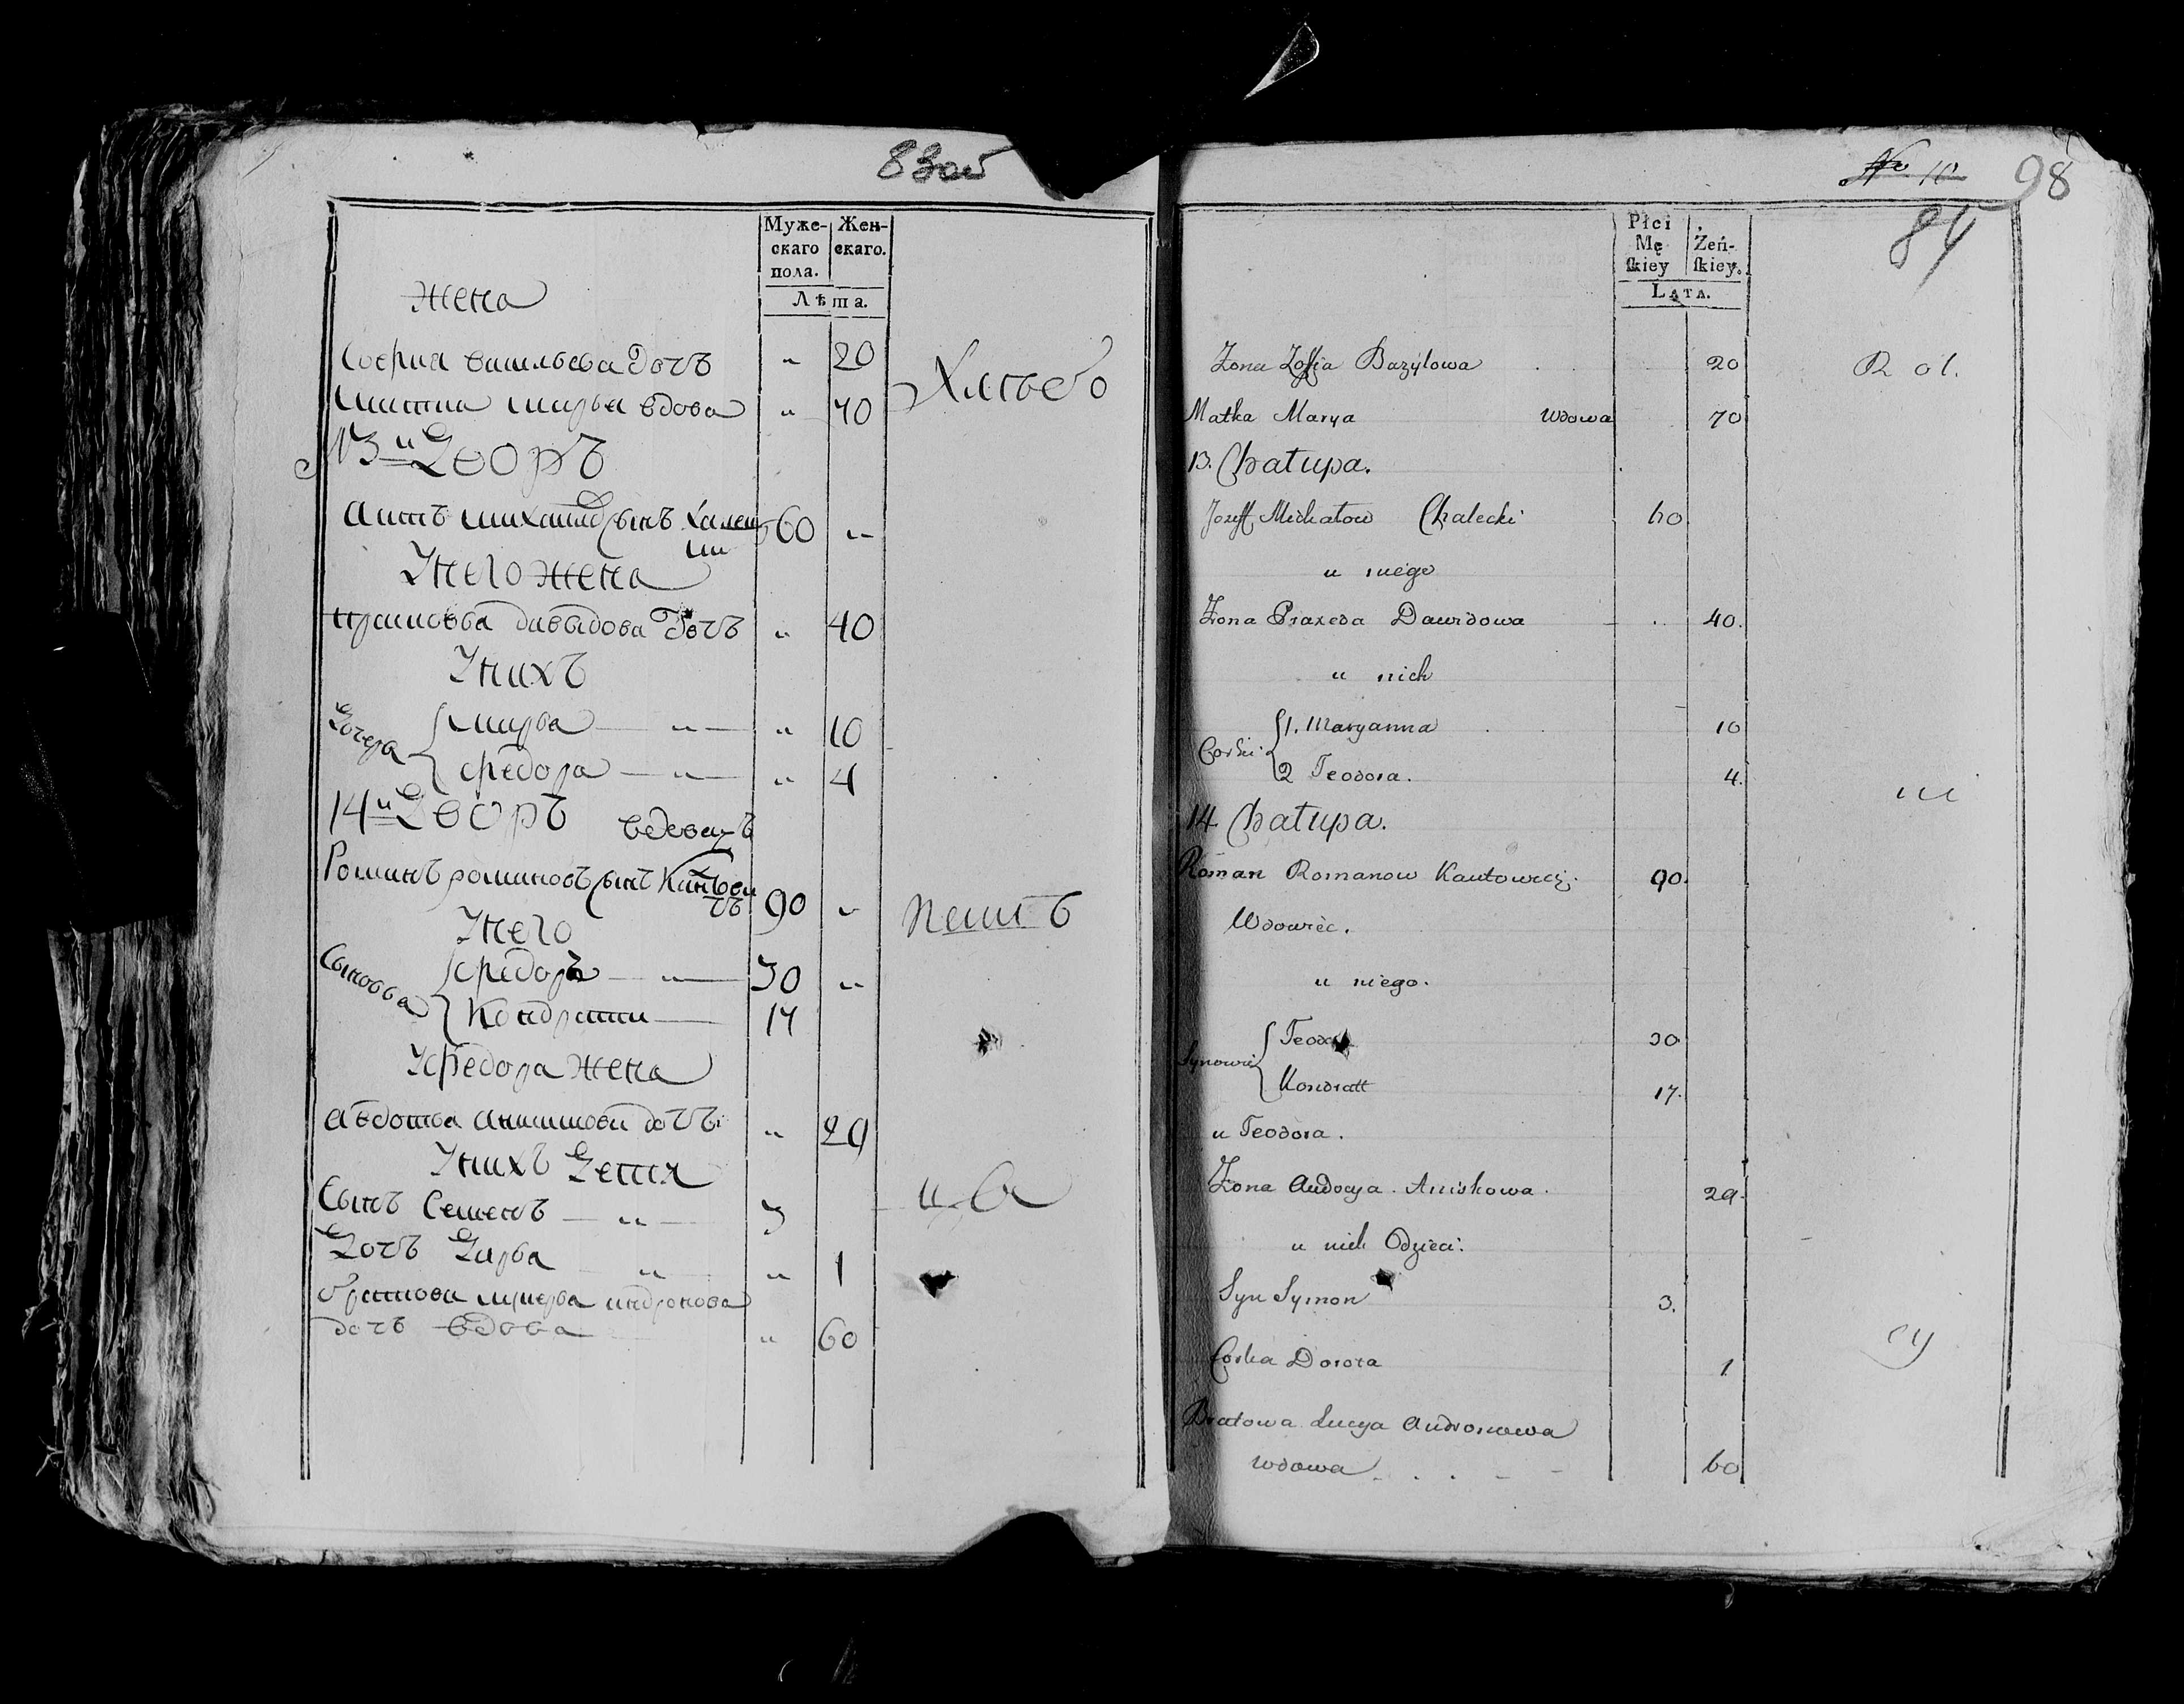 83об
Муже-
скаго
пола.
Жен-
скаго.
Лѣта.
жена
Софиа васильева дочь " 20
Хлѣбо
матка марья вдова " 70
13й Дворъ
михайлъ сынъ 60 "
У него жена
давыдова дочь " 40
У нихъ
дочери
марья " " 10
федора " " 4
14й Дворъ
Романъ романовъ сынъ 90 "
пашъ
У него
сыновья
федоръ " 30 "
Кондратъ 17
У федора жена
авдотья анишкова дочь " 29
У нихъ Детей
Сынъ Семенъ " 3
Дочь Дарья " " 1
братова андронова
дочь вдова " 60
№ 10 98
84
Płci
Mę
ſkiey
Żeń-
ſkiey.
LATA.
Zona Zoffia Bazylowa 20
Rol.
Matka Marya Wdowa 70
13. Chałupa.
Jozeff Michałow Chalecki 60
u niego
Zona Praxeda Dawidowa 40.
u nich
Corki
1. Maryanna 10
2 Teodora. 4.
14. Chałupa.
Roman Romanow 90.
Wdowiec.
u niego.
Synowie
Teodor 30
Kondratt 17.
u Teodora.
Zona Audocya Aniskowa. 29.
u nich Dzieci.
Syn Symon 3.
Corka Dorota 1
Bratowa Lucya Andronowa
wdowa 60